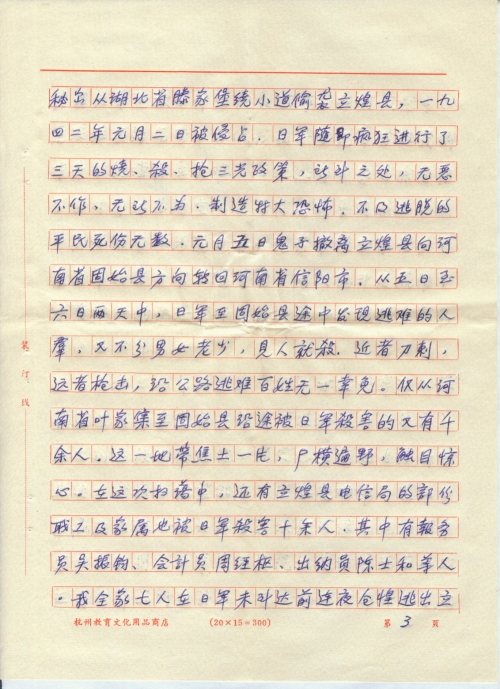 秘密从湖北省滕家堡绕小道偷袭立煌县，一九
四二年元月二日被侵占．日军随即疯狂进行了
三天的烧、杀、抢三光政策，所到之处，无恶
不作、无所不为．制造特大恐怖．不及逃脱的
平民死伤无数．元月五日鬼子撤离立煌县向河
南省固始县方向转回河南省信阳市．从五日至
六日两天中，日军至固始县途中发现逃难的人
群，又不分男女老少，见人就殺．近者刀刺，
远者枪击，沿公路逃难百姓无一幸免．仅从河
南省叶家集至固始县沿途被日军殺害的又有千
余人．这一地带焦土一片，尸横遍野，触目惊
心．在这次扫荡中，还有立煌县电信局的部份
职工及家属也被日军殺害十余人．其中有報务
员吴振钧、会计员周经柜、出纳员陈士和等人
．我全家七人在日军未到达前连夜仓惶逃出立
装订线
杭州教育文化用品商店 (20×15=300) 第 3 页